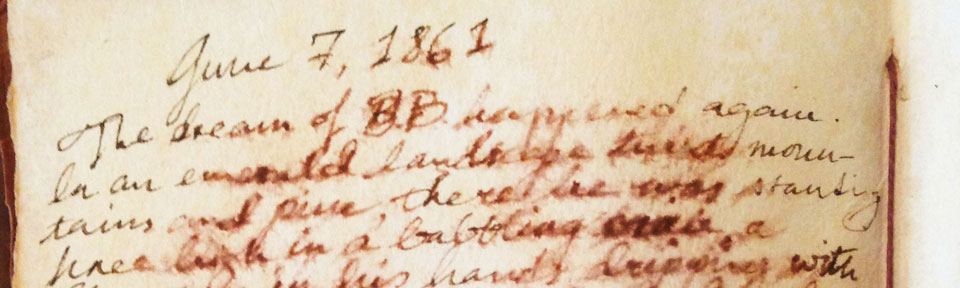 June 7, 1861
The dream of BB happened again.
In an emerald landscape twixt moun-
tains and pine, there he was standing
knee high in a babbling a
in his hands dripping with